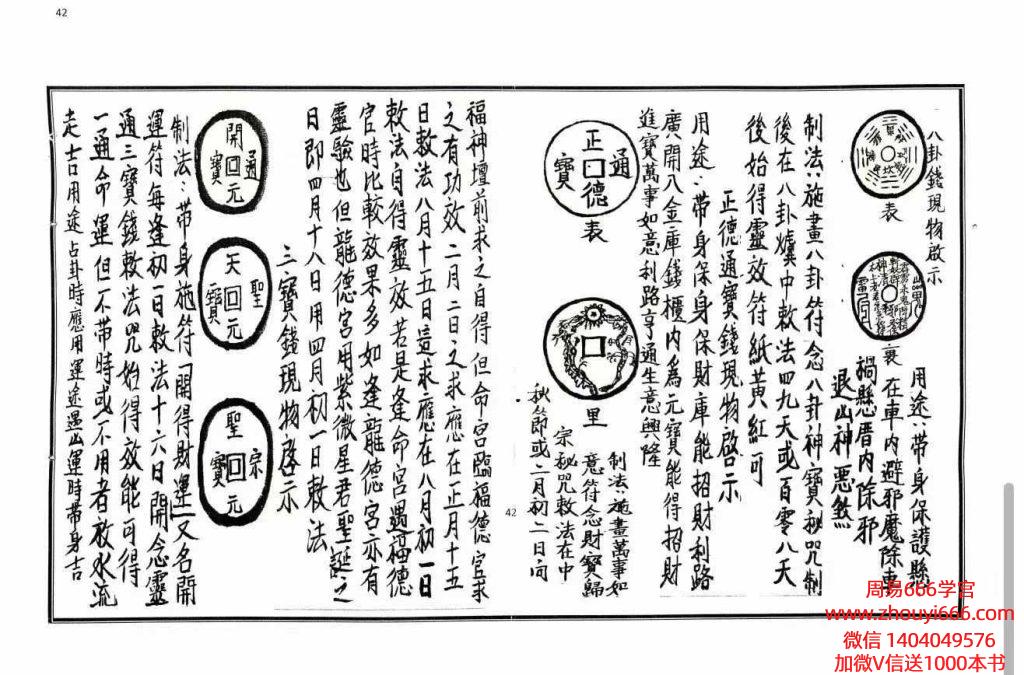 42
八卦錢現物啟示
表
雷
裏
用途：帶身保護縣
在車內避邪魔除車
禍懸厝內除邪
退山神惡煞
制法：施畫八卦符念八卦神寶秘咒制
後在八卦爐中敕法四九天或百零八天
後始得靈效符紙黃紅可
正德通寶錢現物啟示
正德通寶
表
里
用途：帶身保身保財庫能招財利路
廣開八金庫錢櫃內為元寶能得招財
進寶萬事如意利路亨通生意興隆
制法：施畫萬事如
意符念財寶歸
宗秘咒敕法在中
秋節或二月初二日向
42
福神壇前求之自得但命宮臨福德宮求
之有功效二月二日之求應在正月十五
日敕法八月十五日這求應在八月初一日
敕法自得靈效若是逢命宮遇福德
官時比較效果多如逢龍德宮亦有
靈驗也但龍德宮用紫微星君聖誕之
日即四月十八日用四月初一日敕法
三寶錢現物啓示
開元通寶
天元聖寶
聖元宗寶
制法：帶身施符「開得財運」又名開
運符每逢初一日敕法十六日開念靈
通三寶錢敕法咒始得效能可得
一通命運但不帶時或不用者放水流
走吉用途占卦時應用運途過山運時帶身吉
周易666学官
www.zhouyi666.com
微信 1404049576
加微V信送1000本书